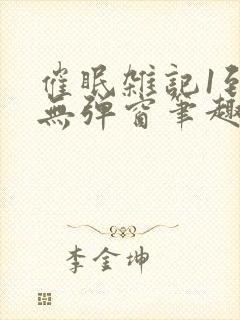 催眠雑記1到
無彈窗筆趣
李金坤